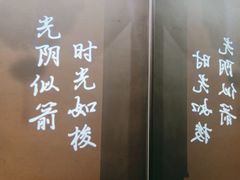 光阴似箭
时光如梭
光阴似箭
时光如梭